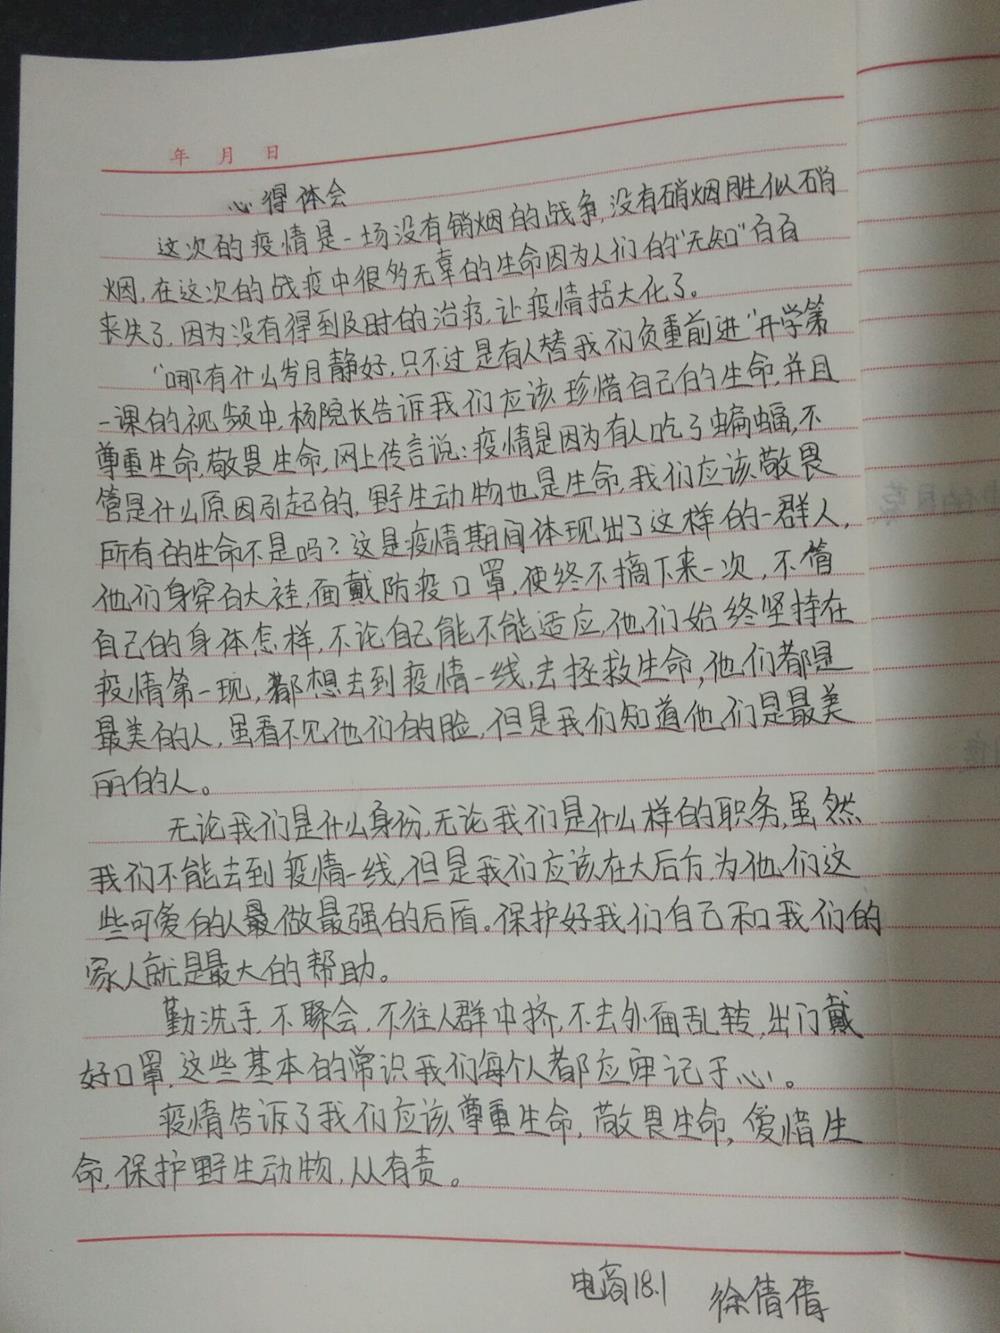 年 月 日
心得体会
这次的疫情是一场没有销烟的战争,没有硝烟胜似硝
烟,在这次的战疫中很多无辜的生命因为人们的"无知"白白
丧失了,因为没有得到及时的治疗,让疫情括大化了。
"哪有什么岁月静好,只不过是有人替我们负重前进"开学第
一课的视频中,杨院长告诉我们应该珍惜自己的生命,并且
尊重生命,敬畏生命,网上传言说:疫情是因为有人吃了蝙蝠,不
管是什么原因引起的,野生动物也是生命,我们应该敬畏
所有的生命不是吗?这是疫情期间体现出了这样的一群人,
他们身穿白大褂,面戴防疫口罩,使终不摘下来一次,不管
自己的身体怎样,不论自己能不能适应,他们始终坚持在
疫情第一现,都想去到疫情一线,去拯救生命,他们都是
最美的人,虽看不见他们的脸,但是我们知道他们是最美
丽的人。
无论我们是什么身份,无论我们是什么样的职务,虽然
我们不能去到疫情一线,但是我们应该在大后方,为他们这
些可爱的人最做最强的后盾。保护好我们自己和我们的
家人就是最大的帮助。
勤洗手,不聚会,不往人群中挤,不去外面乱转,出门戴
好口罩,这些基本的常识我们每个人都应牢记于心。
疫情告诉了我们应该尊重生命,敬畏生命,爱惜生
命,保护野生动物,从有责。
电商18.1 徐倩倩